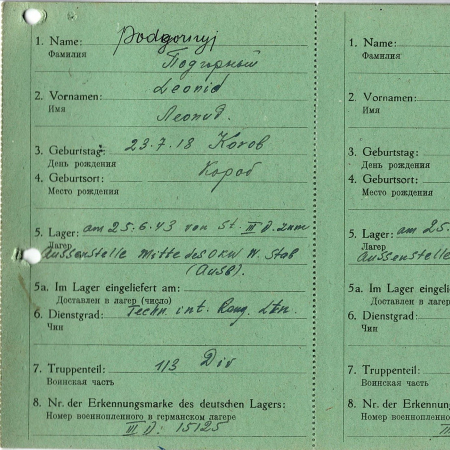 1. Name: Podgornyj
Фамилия Подгорный
2. Vornamen: Leonid
Имя Леонид.
3. Geburtstag: 23.7.18 Korob
День рождения
4. Geburtsort: Короб
Место рождения
5. Lager: am 25.6.43 von St. III D. zum
Лагер
Aussenstelle Mitte des OKW W. Stab
(Ausb).
5a. Im Lager eingeliefert am:
Доставлен в лагер (число)
6. Dienstgrad: Techn. int. Rang. Ltn.
Чин
7. Truppenteil: 113 Div
Воинская часть
8. Nr. der Erkennungsmarke des deutschen Lagers:
Номер военнопленного в германском лагере
VI D: 15125
1. Name:
Фамилия
2. Vornamen:
Имя
3. Geburtstag:
День рождения
4. Geburtsort:
Место рождения
5. Lager: am 25.
Лагер
Aussenstelle
5a. Im Lager ei
Доставлен в лагер
6. Dienstgrad:
Чин
7. Truppenteil:
Воинская часть
8. Nr. der Erkennung
Номер военнопленно